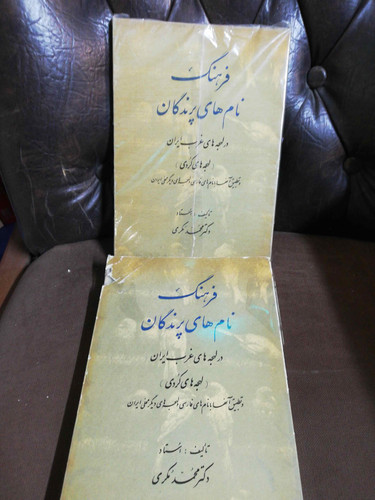 فرهنگ
نام های پرندگان
در لهجه های غرب ایران
( لهجه های کردی )
و تطبیق آنها با نام های فارسی و لهجه های دیگر محلی ایران
تألیف : استاد
دکتر محمد مکری
فرهنگ
نام های پرندگان
در لهجه های غرب ایران
( لهجه های کردی )
و تطبیق آنها با نام های فارسی و لهجه های دیگر محلی ایران
تألیف : استاد
دکتر محمد مکری